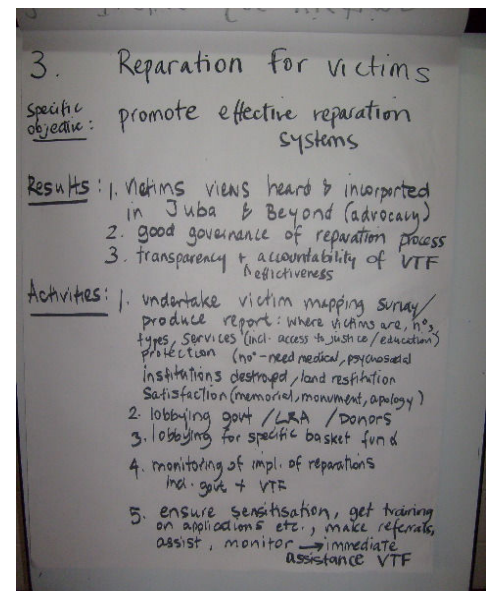 3. Reparation for victims
Specific
objective: promote effective reparation
systems
Results: 1. Victims views heard & incorported
in Juba & Beyond (advocacy)
2. good governance of reparation process
3. transparency + accountability of VTF
& effectiveness
Activities: 1. undertake victim mapping survay/
produce report: where victims are, n°s,
types, services (incl. access to justice/education)
protection (n°-need medical, psychosocial
institutions destroyed, land restitution
satisfaction (memorial, monument, apology)
2. lobbying govt /LRA /Donors
3. lobbying for specific basket fund
4. monitoring of impl. of reparations
incl. govt + VTF
5. ensure sensitisation, get training
on applications etc., make referrals,
assist, monitor → immediate
assistance VTF